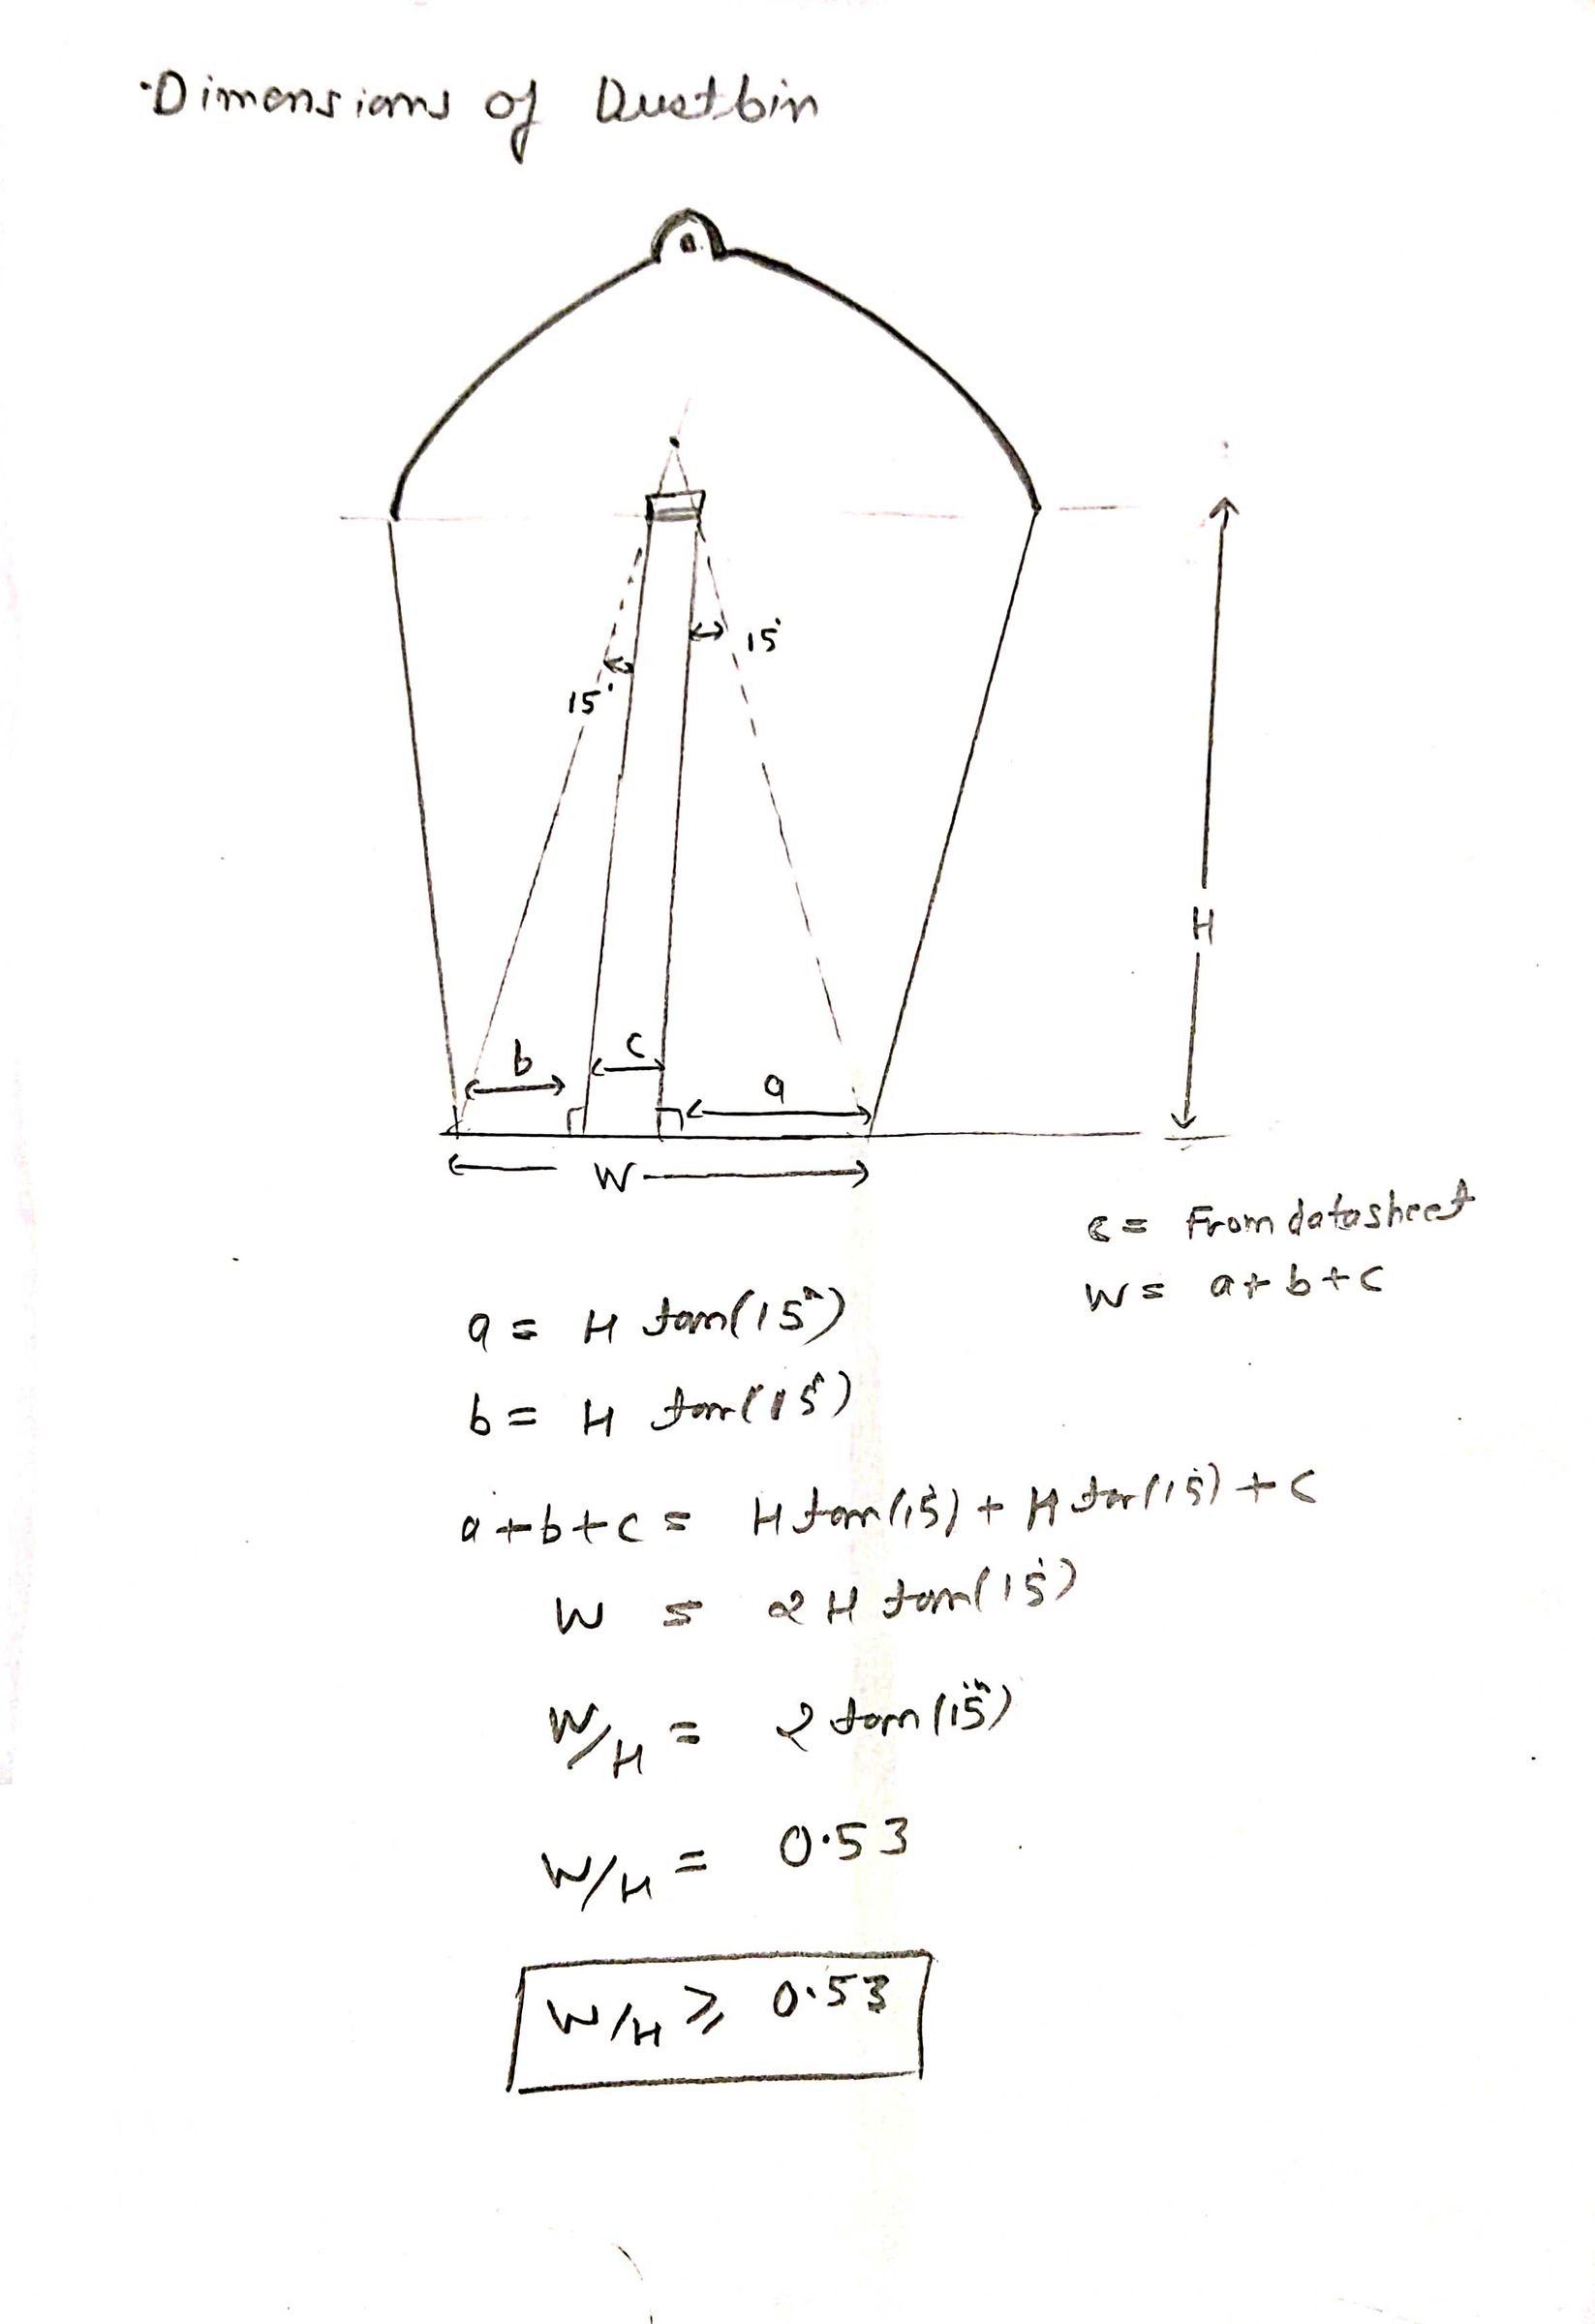 Dimensions of Dustbin
15°
15°
H
b
c
a
W
c = From datasheet
W = a+b+c
a = H tan(15°)
b = H tan(15°)
a+b+c = H tan(15°) + H tan(15°) + c
W = 2 H tan(15°)
W/H = 2 tan(15°)
W/H = 0.53
W/H ≥ 0.53